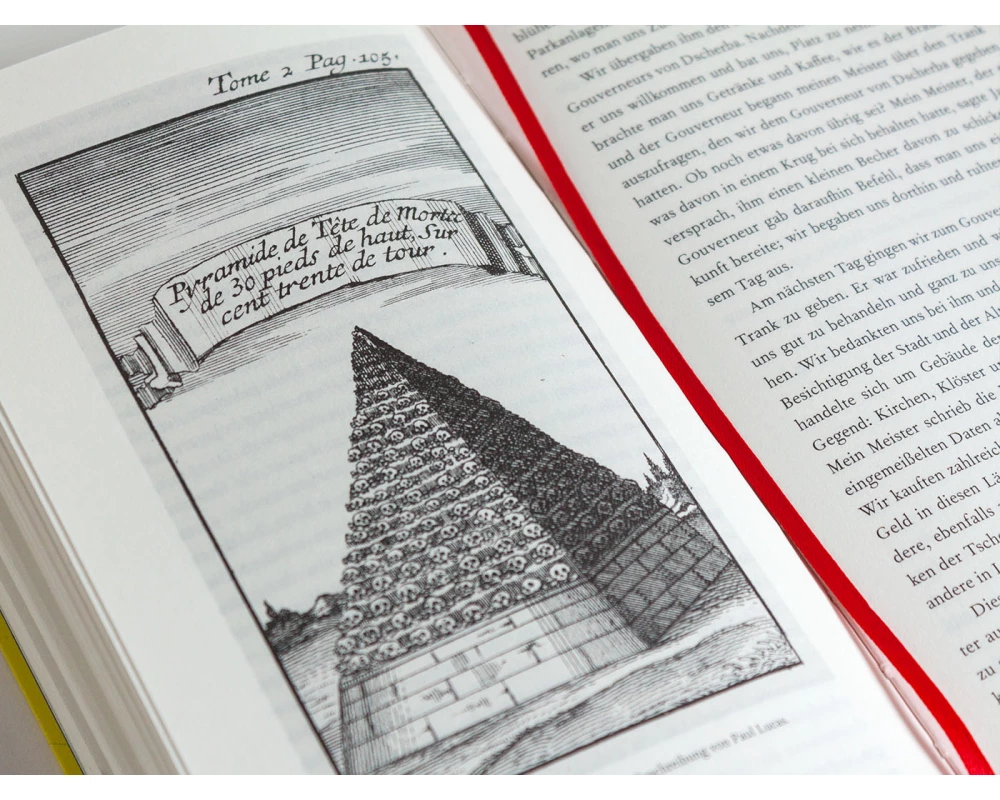 Tome 2 Pag. 103.
Pyramide de Tête de Morte
de 30 pieds de haut, Sur
cent trente de tour.
von Paul Lucas.
Parkanlagen
ren, wo man uns
Wir übergaben ihm den
Gouverneurs von Dscherba. Nachdem
er uns willkommen und hat uns, Platz zu
brachte man uns Getränke und Kaffee, wie es der Brauch
und der Gouverneur begann meinen Meister über den Trank
auszufragen, den wir dem Gouverneur von Dscherba gegeben
hatten. Ob noch etwas davon übrig sei? Mein Meister, der
was davon in einem Krug bei sich behalten hatte, sagte
versprach, ihm einen kleinen Becher davon zu schick
Gouverneur gab daraufhin Befehl, dass man uns
kunft bereite; wir begaben uns dorthin und ruhte
sem Tag aus.
Am nächsten Tag gingen wir zum Gouve
Trank zu geben. Er war zufrieden und
uns gut zu behandeln und ganz zu uns
hen. Wir bedankten uns bei ihm und
Besichtigung der Stadt und der Al
handelte sich um Gebäude der
Gegend: Kirchen, Klöster
Mein Meister schrieb die
eingemeißelten Daten
Wir kauften zahlreich
Geld in diesen Lä
dere, ebenfalls
ken der Tsche
andere in
Die
ter au
zu